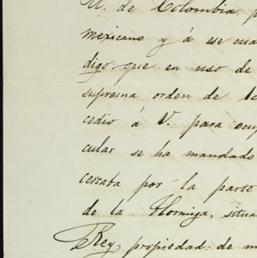 U. de Colombia p
mexicano y á ese cua
digo: que en uso de
suprema orden de
cedio á V. para
cular se ha mandado
cercaba por la parte
de la Hormiga, situa
Rey propiedad de m